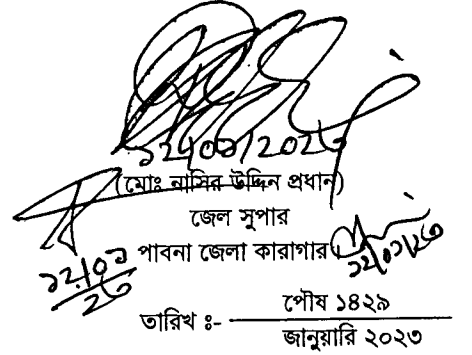 ১২/০১/২০২৩
(মোঃ নাসির উদ্দিন প্রধান)
জেল সুপার
পাবনা জেলা কারাগার
১২/০১/২৩
১২/০১/২৩
তারিখ ঃ- পৌষ ১৪২৯
জানুয়ারি ২০২৩